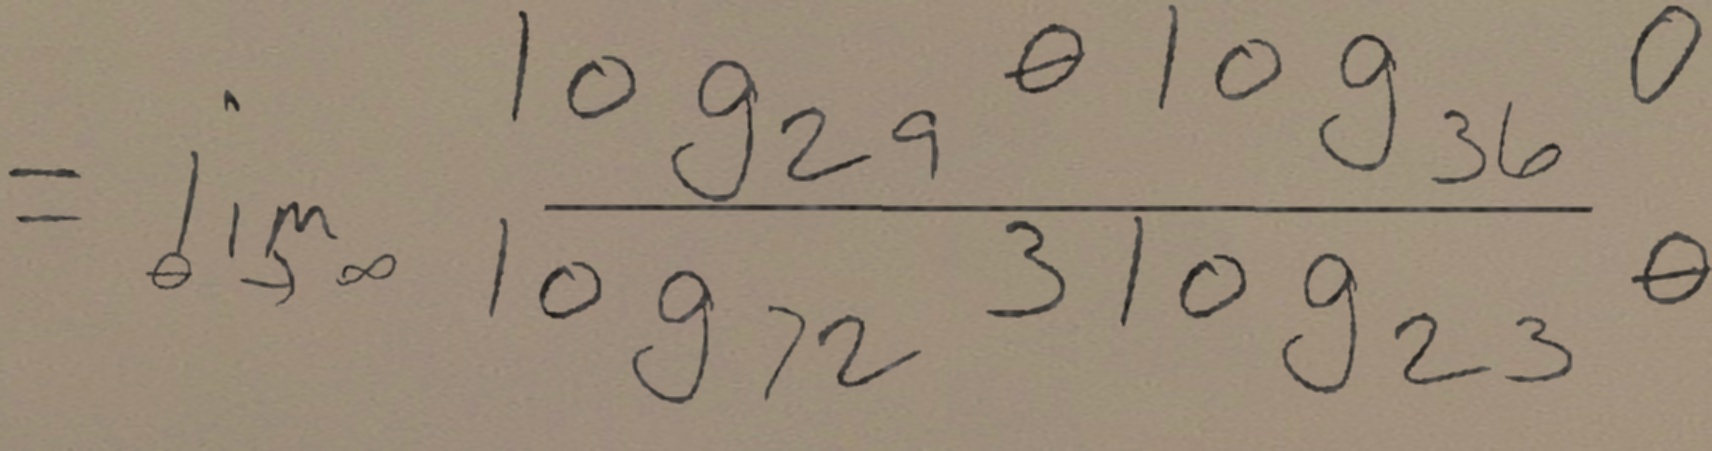 = \lim_{\theta \to \infty} \frac{\log_{29} \theta \log_{36} 0}{\log_{72} 3 \log_{23} \theta}